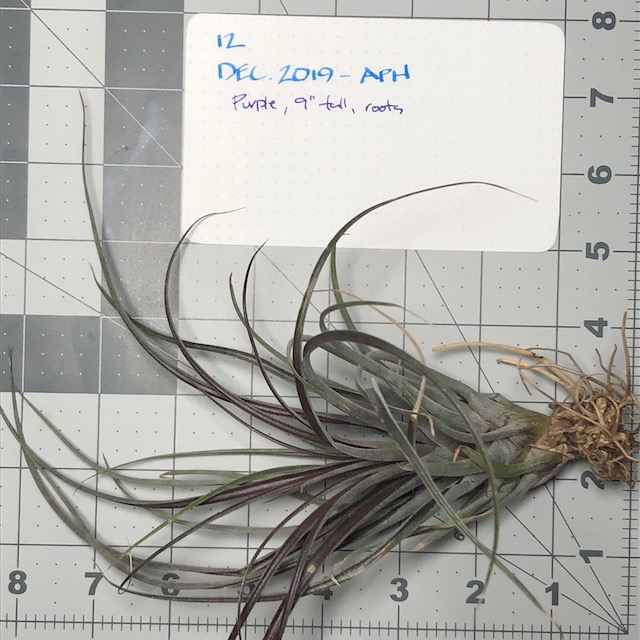 12
DEC. 2019 - APH
Purple, 9" tall, roots
8
7
6
5
4
2
1
8
7
6
5
4
3
2
1